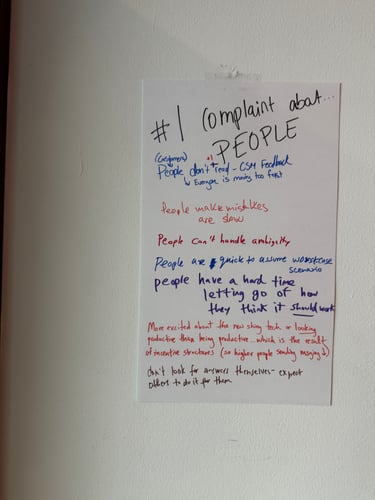 #1 Complaint about...
PEOPLE
(customers) +1
People don't read - CSM Feedback
↳ Everyone is moving too fast
People make mistakes
are slow
People can't handle ambiguity
People are quick to assume worst case
scenario
people have a hard time
letting go of how
they think it should work
More excited about the new shiny tech or looking
productive than being productive... which is the result
of incentive structures (so higher people sending messaging ↓)
don't look for answers themselves - expect
others to do it for them